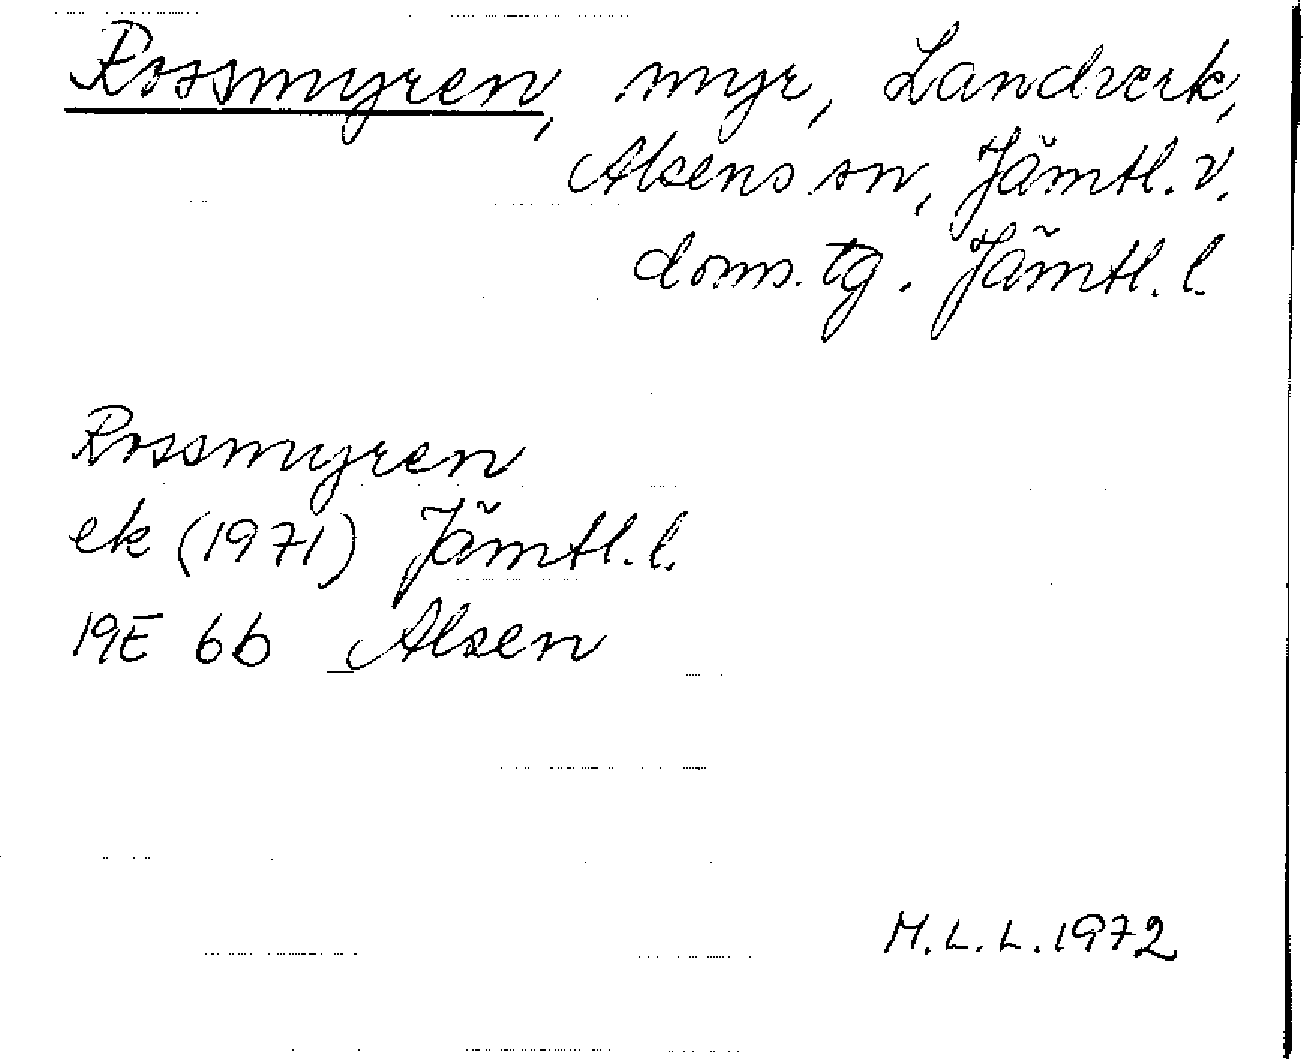 Rossmyren, myr, Landverk,
Alsens sn, Jämtl. v.
doms. tg. Jämtl. l.
Rossmyren
ek (1971) Jämtl. l.
19E 6b Alsen
M. L. L. 1972